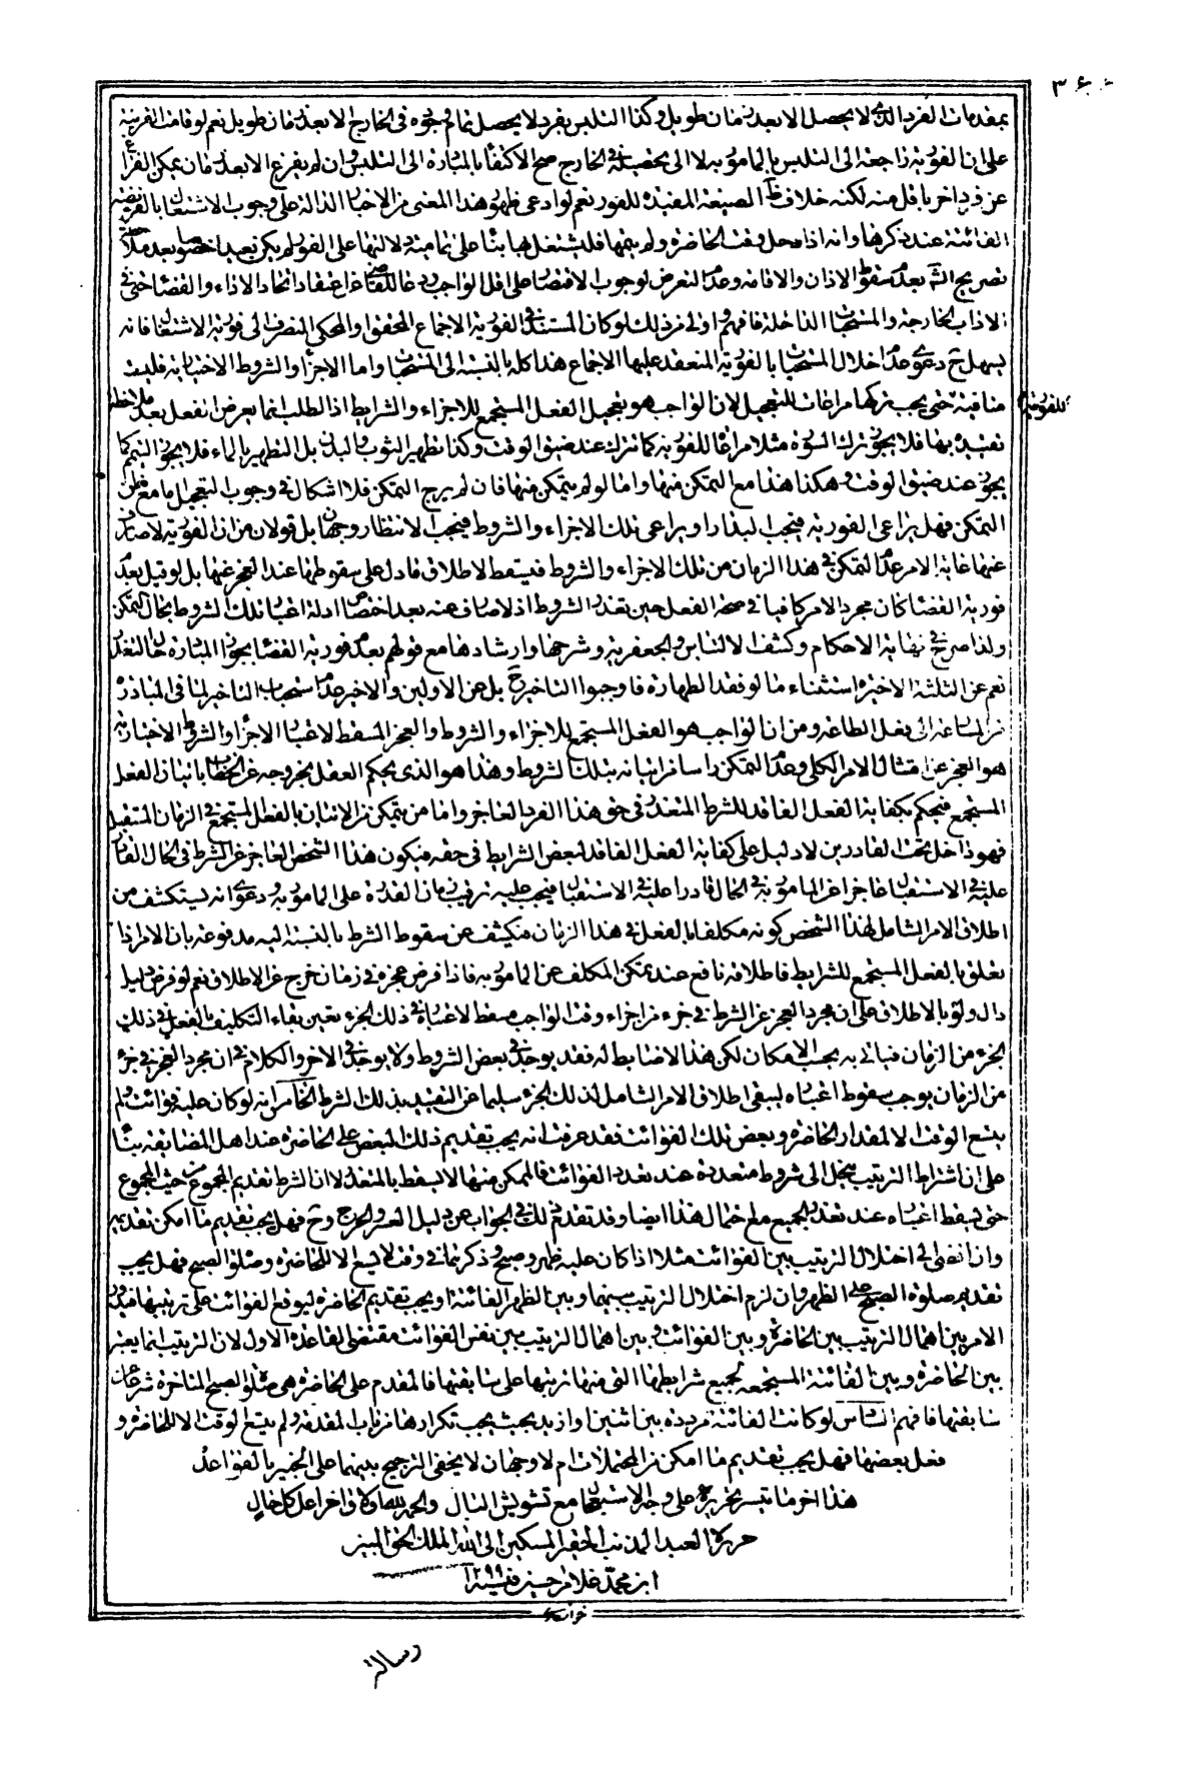 ٣٦٠
بمقدمات الفرد الذى لا يحصل الا بعد زمان طويل وكذا التلبس بفرد لا يحصل تمام وجوده فى الخارج الا بعد زمان طويل نعم لو قامت القرينة
على ان الفورية راجعة الى التلبس بالمامور به لا الى تحصيله فى الخارج صح الاكتفاء بالمبادرة الى التلبس وان لم يفرغ الا بعد زمان يمكن الفراغ
عن فرد اخر باقل منه لكنه خلاف ظ الصيغة المفيدة للفور نعم لو ادعى ظهور هذا المعنى من الاخبار الدالة على وجوب الاشتغال بالفريضة
الفائتة عند ذكرها وانه اذا دخل وقت الحاضرة ولم يتمها فليشتغل بها بناء على تمامية دلالتها على الفور لم يكن بعيدا خصوصا بعد ملاحظة
تصريح بعدم سقوط الاذان والاقامة وعدم التعرض لوجوب الاقتصار على اقل الواجب اعتقاد اتحاد الاداء والقضاء حتى فى
الاداب الخارجة والمستحبات الداخلة فافهم واولى من ذلك لو كان المستند فى الفورية الاجماع المحقق والمحكى المنصرف الى فورية الاشتغال فانه
يسهل ح دعوى عدم اخلال المستحبات بالفورية المنعقد عليها الاجماع هذا كله بالنسبة الى المستحبات واما الاجزاء والشروط الاختيارية فليست
منافية للفورية حتى يجب تركها مراعات للتعجيل لان الواجب هو تعجيل الفعل المستجمع للاجزاء والشرايط اذ الطلب انما يعرض الفعل بعد ملاحظة
تقييده بها فلا يجوز ترك السورة مثلا مراعاة للفورية كما تترك عند ضيق الوقت وكذا تطهير الثوب والبدن بل التطهير بالماء فلا يجوز التيمم كما
يجوز عند ضيق الوقت وهكذا هذا مع التمكن منها واما لو لم يتمكن منها فان لم يرج التمكن فلا اشكال فى وجوب التعجيل واما مع ظن
التمكن فهل يراعى الفورية فيجب البدار او يراعى تلك الاجزاء والشروط فيجب الانتظار وجهان بل قولان من ان الفورية لا صارف
عنها غاية الامر عدم التمكن فى هذا الزمان من تلك الاجزاء والشروط فيسقط لاطلاق ما دل على سقوطها عند العجز عنها بل لو قيل بعدم
فورية القضاء كان مجرد الامر كافيا فى صحة الفعل حين تعذر الشروط اذ لا صارف عنه بعد اختصاص ادلة اعتبار تلك الشروط بحال التمكن
ولذا صرح فى نهاية الاحكام وكشف الالتباس والجعفرية وشرحها وارشادها مع قولهم بعدم فورية القضاء بجواز المبادرة حال التعذر
نعم عن الثلثة الاخيرة استثناء ما لو فقد الطهارة فاوجبوا التاخير ح بل عن الاولين والاخير عدم استحباب التاخير لما فى المبادرة
من المسارعة الى فعل الطاعة ومن ان الواجب هو الفعل المستجمع للاجزاء والشروط والعجز المسقط لاعتبار الاجزاء والشروط الاختيارية
هو العجز عن امتثال الامر الكلى وعدم التمكن راسا من اتيانه بتلك الشروط وهذا هو الذى يحكم العقل بخروجه عن الخطاب باتيان الفعل
المستجمع فيحكم بكفاية الفعل الفاقد للشرط المتعذر فى حق هذا الفرد العاجز واما من يتمكن من الاتيان بالفعل المستجمع فى الزمان المستقبل
فهو داخل تحت القادرين لا دليل على كفاية الفعل الفاقد لبعض الشرايط فى حقه فيكون هذا الشخص العاجز عن الشرط فى الحال القادر
عليه فى الاستقبال عاجزا عن المامور به فى الحال قادرا عليه فى الاستقبال فيجب عليه ترقب زمان القدرة على المامور به ودعوى انه يستكشف من
اطلاق الامر الشامل لهذا الشخص كونه مكلفا بالفعل فى هذا الزمان فيكشف عن سقوط الشرط بالنسبة اليه مدفوعة بان الامر اذا
تعلق بالفعل المستجمع للشرايط فاطلاقه نافع عند تمكن المكلف عن المامور به فاذا فرض عجزه فى زمان خرج عن الاطلاق نعم لو فرض دليل
دال ولو بالاطلاق على ان مجرد العجز عن الشرط فى جزء من اجزاء وقت الواجب مسقط لاعتباره فى ذلك الجزء تعين بقاء التكليف بالفعل فى ذلك
الجزء من الزمان فياتى به بحسب الامكان لكن هذا لا ضابط له فقد يوجد فى بعض الشروط ولا يوجد فى الاخر والكلام فى ان مجرد العجز فى جزء
من الزمان يوجب سقوط اعتباره ليبقى اطلاق الامر الشامل لذلك الجزء سليما عن التقييد بذلك الشرط الخامس انه لو كان عليه فوائت ولم
يتسع الوقت الا لمقدار الحاضرة وبعض تلك الفوائت فقد عرفت انه يجب تقديم ذلك البعض على الحاضرة عند اهل المضايقة بناء
على ان اشتراط الترتيب ينحل الى شروط متعددة عند تعدد الفوائت فالممكن منها لا يسقط بالمتعذر لا ان الشرط تقديم المجموع من حيث المجموع
حتى يسقط اعتباره عند تعذر الجميع مع احتمال هذا ايضا وقد تقدم ذلك فى الجواب عن دليل العسر والحرج وح فهل يجب تقديم ما امكن تقديمه
وان افضى الى اختلال الترتيب بين الفوائت مثلا اذا كان عليه ظهر وصبح وذكرهما فى وقت لا يسع الا للحاضرة وصلوة الصبح فهل يجب
تقديم صلوة الصبح على الظهر وان لزم اختلال الترتيب بينها وبين الظهر الفائتة او يجب تقديم الحاضرة ليوقع الفوائت على ترتيبها فيدور
الامر بين اهمال الترتيب بين الحاضرة وبين الفوائت وبين اهمال الترتيب بين نفس الفوائت مقتضى القاعدة الاول لان الترتيب انما يعتبر
بين الحاضرة وبين الفائتة المستجمعة لجميع شرايطها التى منها ترتبها على سابقتها فالمقدم على الحاضرة هى صلوة الصبح المتاخرة شرعا عن
سابقتها فافهم السادس لو كانت الفائتة مرددة بين اثنين او ازيد بحيث يجب تكرارها من باب المقدمة ولم يتسع الوقت الا للحاضرة و
فعل بعضها فهل يجب تقديم ما امكن من المحتملات ام لا وجهان لا يخفى الترجيح بينهما على الخبير بالقواعد
هذا اخر ما تيسر تحريره على وجه الاستعجال مع تشويش البال والحمد لله اولا واخرا على كل حال
حرره العبد المذنب الحقير المسكين الى الله الملك الحق المبين
ابن محمد غلامرضا سنة ١٢٩٩
رسالة